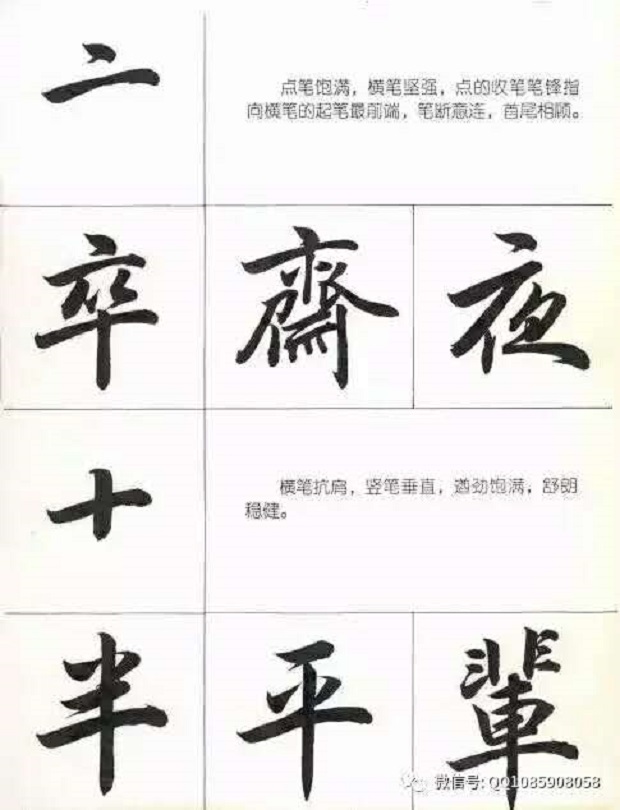 亠
点笔饱满，横笔坚强，点的收笔笔锋指
向横笔的起笔最前端，笔断意连，首尾相顾。
卒 齋 夜
十
横笔抗肩，竖笔垂直，遒劲饱满，舒朗
稳健。
半 平 輩
微信号: QQ1085908058